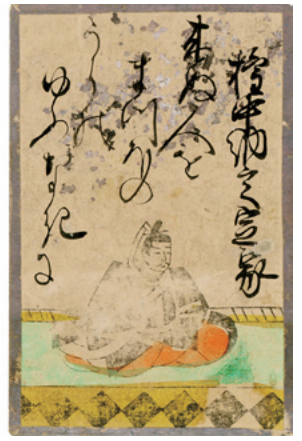 権中納言定家
来ぬ人を
まつほの
うらの
ゆふなきに